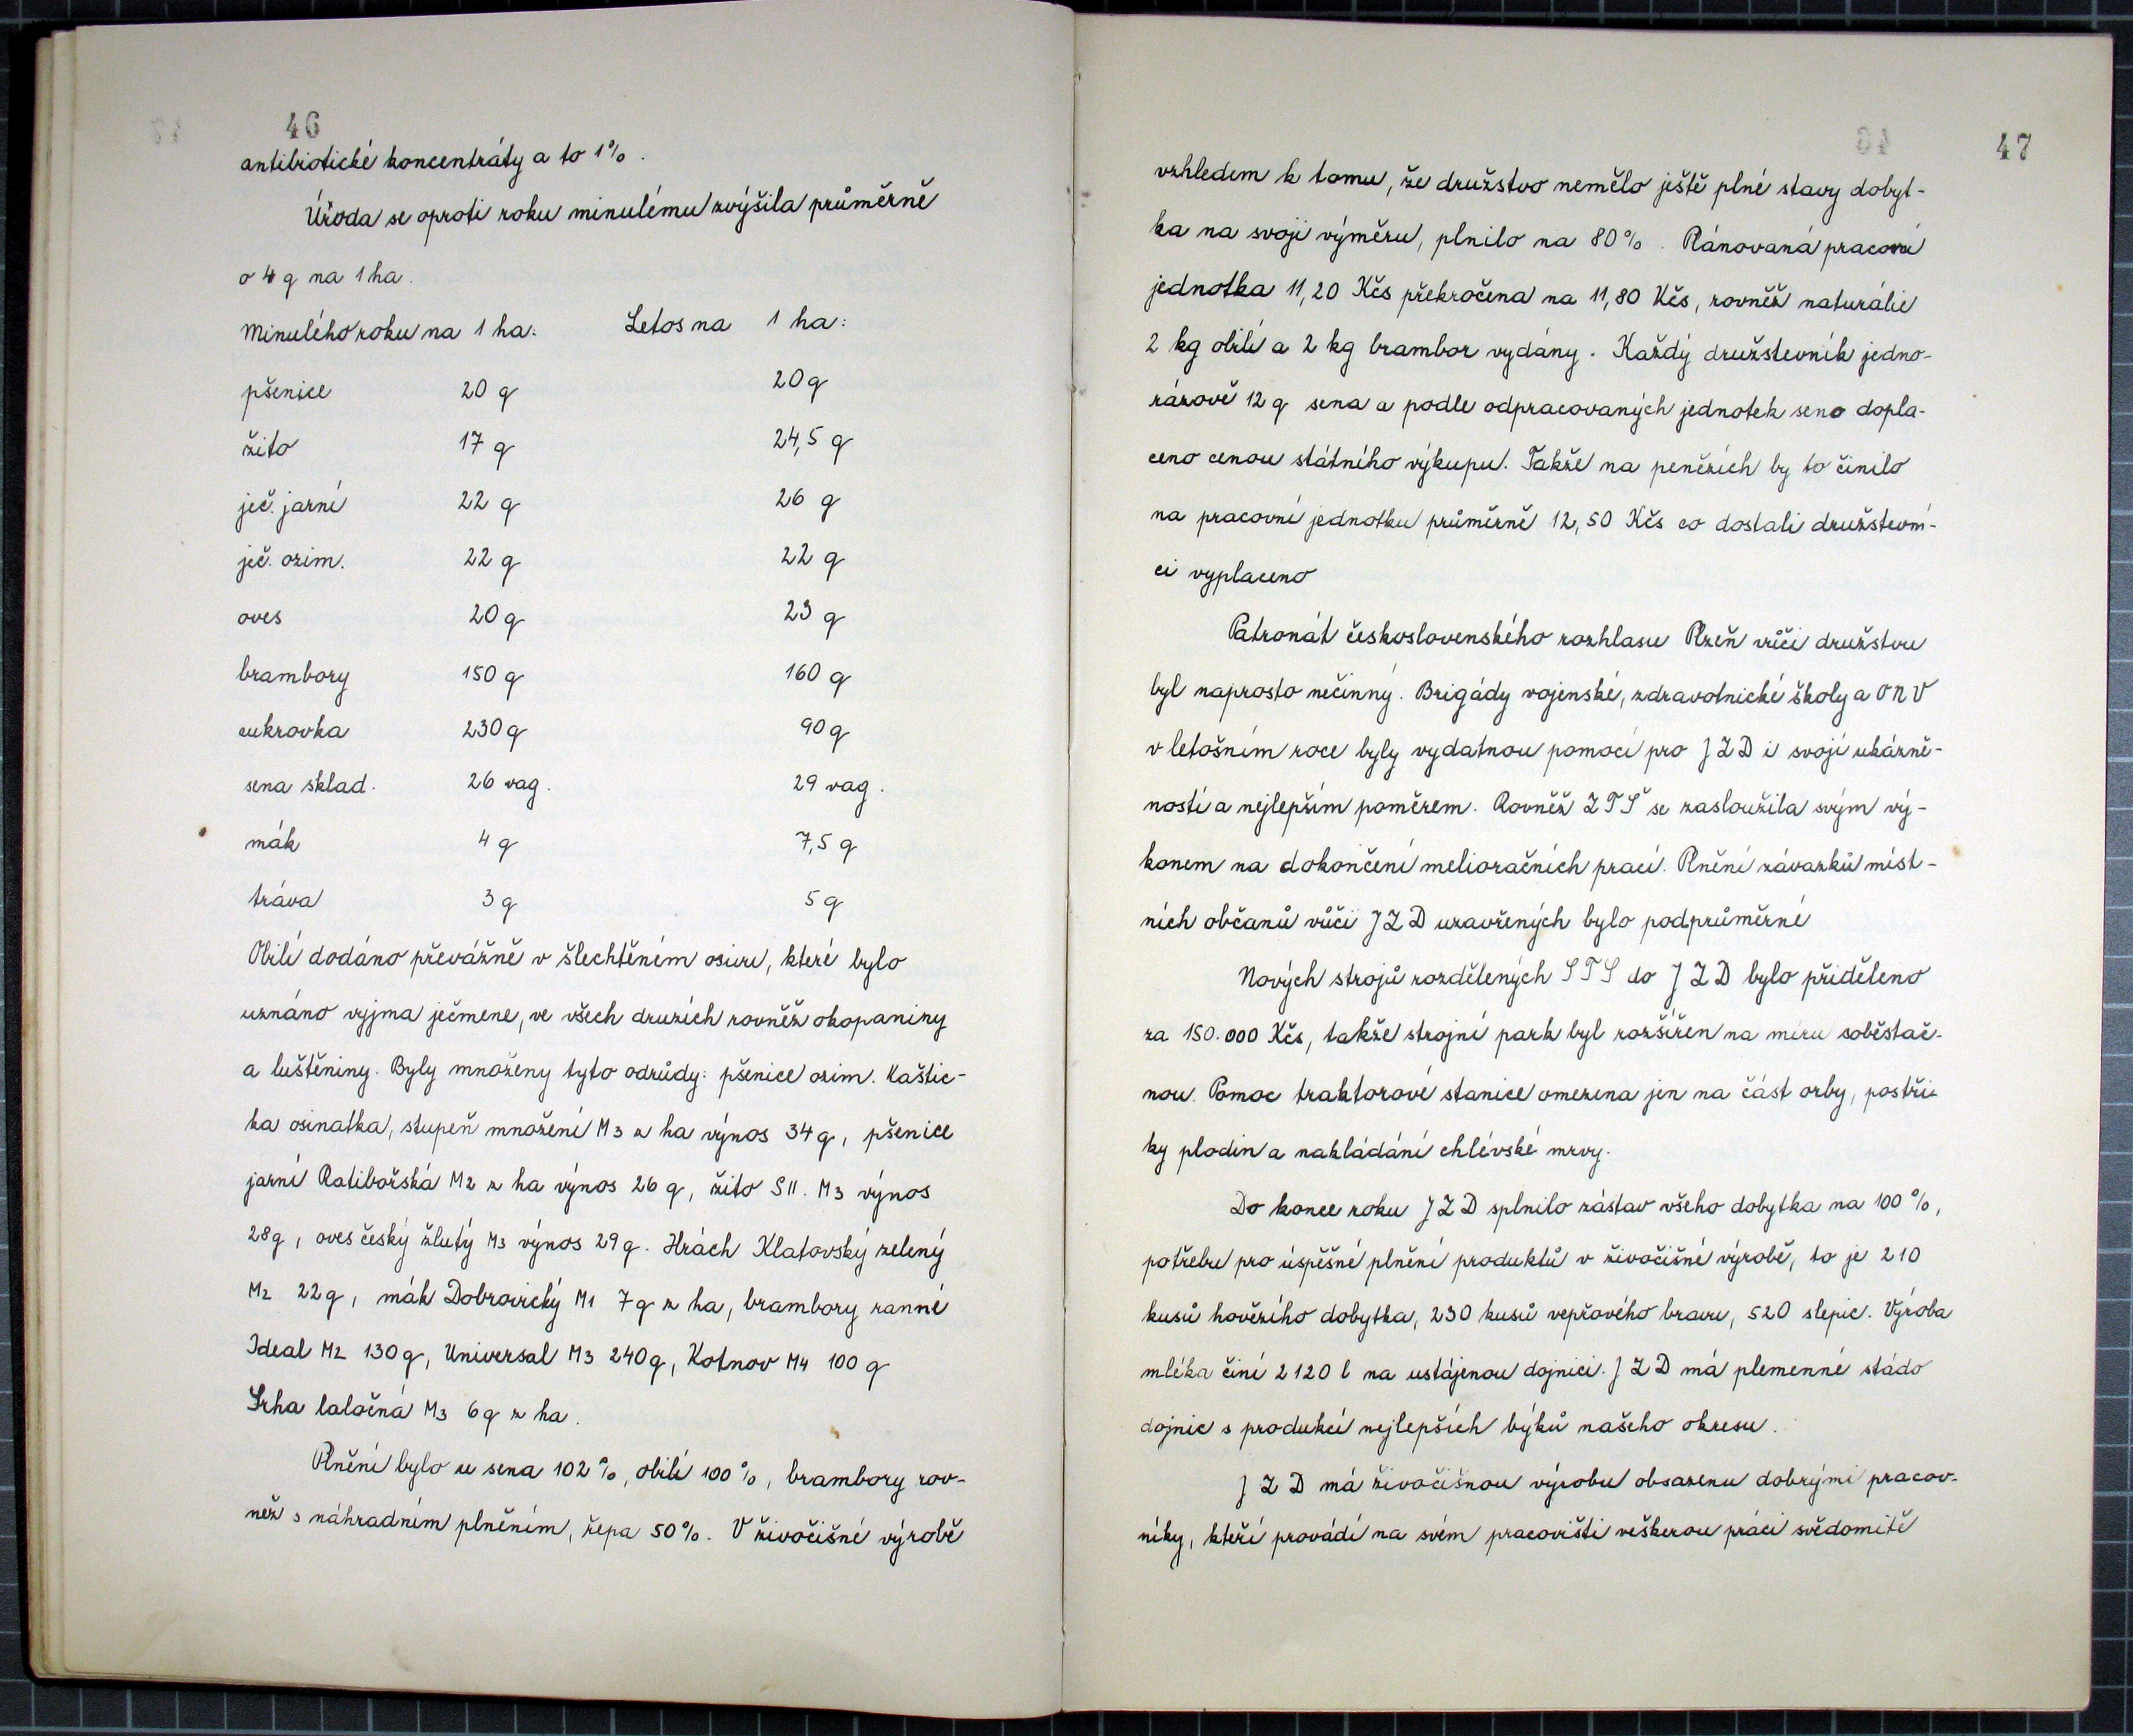 46
antibiotické koncentráty a to 1%.
Úroda se oproti roku minulému zvýšila průměrně
o 4 q na 1 ha.
Minulého roku na 1 ha: Letos na 1 ha:
pšenice 20 q 20 q
žito 17 q 24,5 q
ječ. jarní 22 q 26 q
ječ. ozim. 22 q 22 q
oves 20 q 23 q
brambory 150 q 160 q
cukrovka 230 q 90 q
sena sklad. 26 vag. 29 vag.
mák 4 q 7,5 q
tráva 3 q 5 q
Obilí dodáno převážně v šlechtěném osivu, které bylo
uznáno vyjma ječmene, ve všech druzích rovněž okopaniny
a luštěniny. Byly množeny tyto odrůdy: pšenice ozim. Kaštic-
ka osinatka, stupeň množení M3 z ha výnos 34 q, pšenice
jarní Ratibořská M2 z ha výnos 26 q, žito SII. M3 výnos
28 q, oves český žlutý M3 výnos 29 q. Hrách Klatovský zelený
M2 22 q, mák Dobrovický M1 7 q z ha, brambory ranné
Ideal M2 130 q, Universal M3 240 q, Kotnov M4 100 q
Srha laločná M3 6 q z ha.
Plnění bylo u sena 102%, obilí 100%, brambory rov-
něž s náhradním plněním, řepa 50%. V živočišné výrobě
47
vzhledem k tomu, že družstvo nemělo ještě plné stavy dobyt-
ka na svoji výměru, plnilo na 80%. Plánovaná pracovní
jednotka 11,20 Kčs překročena na 11,80 Kčs, rovněž naturálie
2 kg obilí a 2 kg brambor vydány. Každý družstevník jedno-
rázově 12 q sena a podle odpracovaných jednotek seno dopla-
ceno cenou státního výkupu. Takže na penězích by to činilo
na pracovní jednotku průměrně 12,50 Kčs co dostali družstevní-
ci vyplaceno
Patronát československého rozhlasu Plzeň vůči družstvu
byl naprosto nečinný. Brigády vojenské, zdravotnické školy a ONV
v letošním roce byly vydatnou pomocí pro JZD i svojí ukázně-
ností a nejlepším poměrem. Rovněž ZTŠ se zasloužila svým vý-
konem na dokončení melioračních prací. Plnění závazků míst-
ních občanů vůči JZD uzavřených bylo podprůměrné
Nových strojů rozdělených STS do JZD bylo přiděleno
za 150.000 Kčs, takže strojní park byl rozšířen na míru soběstač-
nou. Pomoc traktorové stanice omezena jen na část orby, postři-
ky plodin a nakládání chlévské mrvy.
Do konce roku JZD splnilo zástav všeho dobytka na 100%,
potřebu pro úspěšné plnění produktů v živočišné výrobě, to je 210
kusů hovězího dobytka, 230 kusů vepřového bravu, 520 slepic. Výroba
mléka činí 2120 l na ustájenou dojnici. JZD má plemenné stádo
dojnic s produkcí nejlepších býků našeho okresu.
JZD má živočišnou výrobu obsazenu dobrými pracov-
níky, kteří provádí na svém pracovišti veškerou práci svědomitě